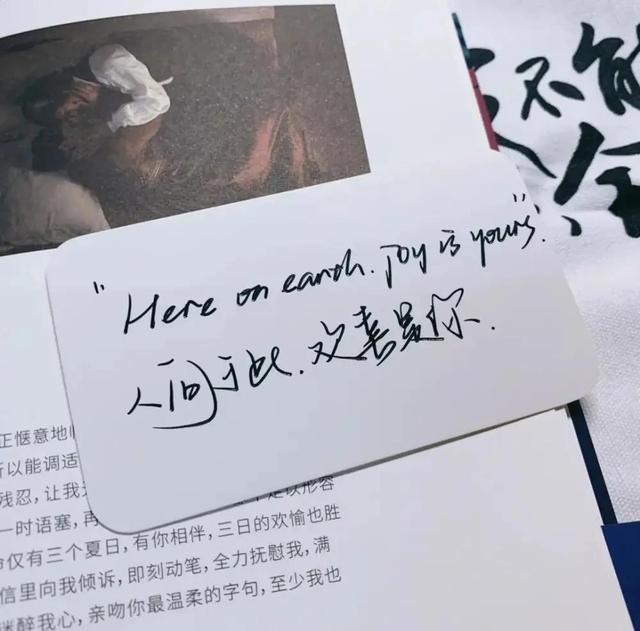 不能
"Here on earth. Joy is yours".
人间于此. 欢喜是你.
正惬意地
所以能调适
残忍,让我
足以形容
一时语塞,再
命仅有三个夏日,有你相伴,三日的欢愉也胜
信里向我倾诉,即刻动笔,全力抚慰我,满
迷醉我心,亲吻你最温柔的字句,至少我也